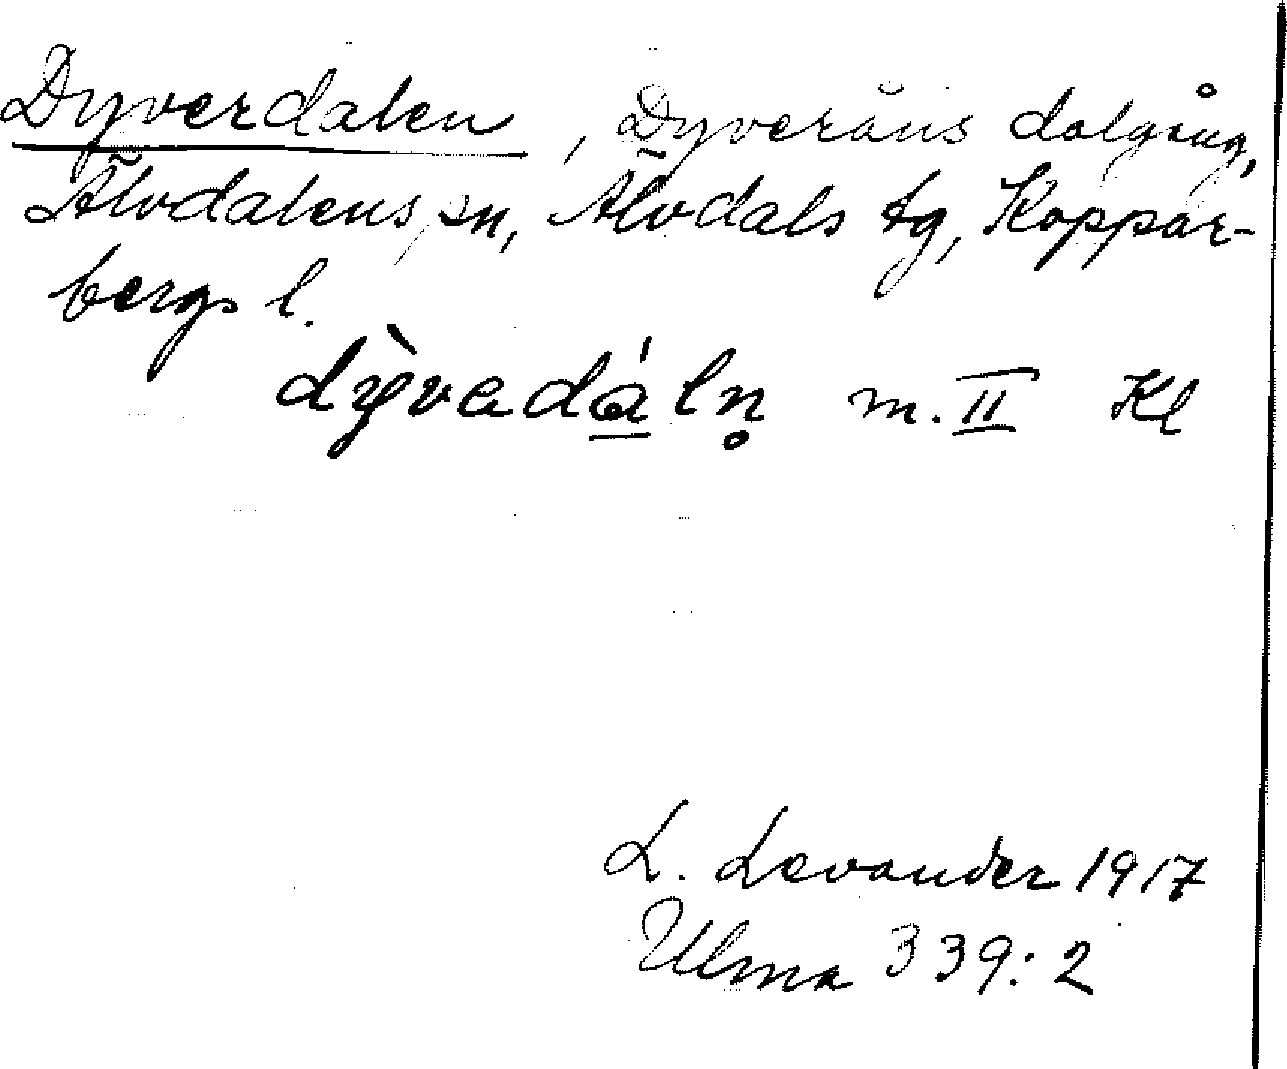 Dyverdalen, Dyveråns dalgång,
Älvdalens sn, Älvdals tg, Koppar-
bergs l.
dỳvadáln̥ m. II Kl
L. Levander 1917
Ulma 339:2